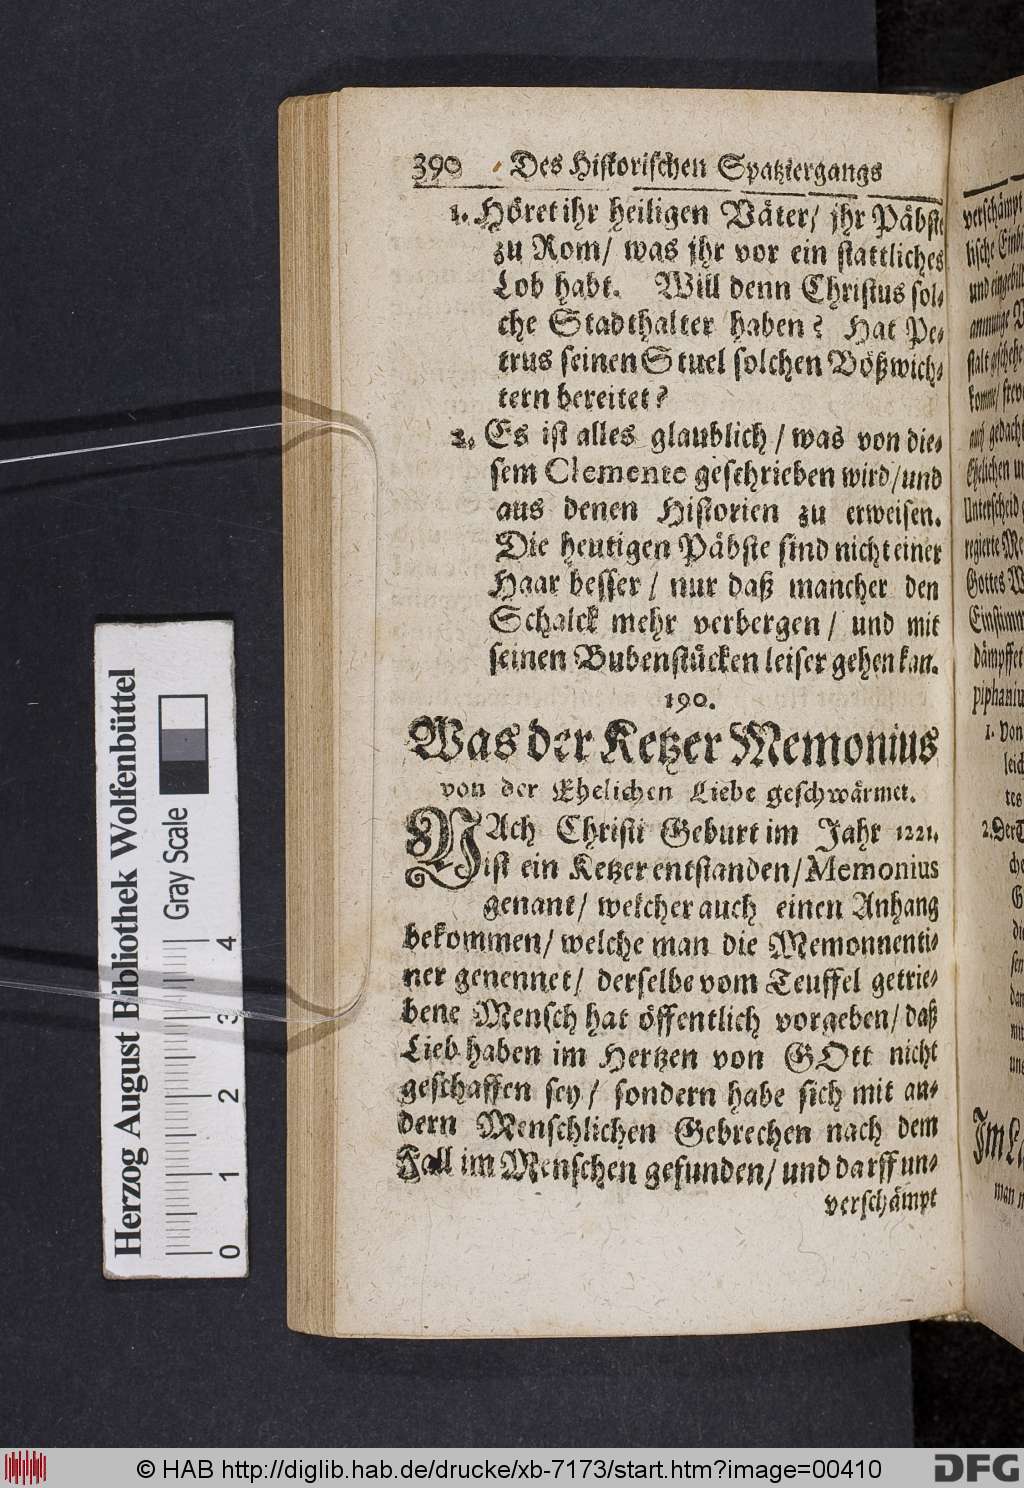 390 Des Historischen Spatziergangs
1. Höret ihr heiligen Väter/ jhr Päbste
zu Rom/ was jhr vor ein stattliches
Lob habt. Will denn Christus sol-
che Stadthalter haben? Hat Pe-
trus seinen Stuel solchen Bößwich-
tern bereitet?
2. Es ist alles glaublich/ was von die-
sem Clemente geschrieben wird/ und
aus denen Historien zu erweisen.
Die heutigen Päbste sind nicht einer
Haar besser/ nur daß mancher den
Schalck mehr verbergen/ und mit
seinen Bubenstücken leiser gehen kan.
190.
Was der Ketzer Memonius
von der Ehelichen Liebe geschwärmet.
NAch Christi Geburt im Jahr 1221.
ist ein Ketzer entstanden/ Memonius
genant/ welcher auch einen Anhang
bekommen/ welche man die Memonnenti-
ner genennet/ derselbe vom Teuffel getrie-
bene Mensch hat öffentlich vorgeben/ daß
Lieb haben im Hertzen von GOtt nicht
geschaffen sey/ sondern habe sich mit an-
dern Menschlichen Gebrechen nach dem
Fall im Menschen gefunden/ und darff un-
verschämpt
verschämpt
lische
und
komme/
auß
Ehelichen
Unterscheid
regierte
Gottes
dämpffet
1. Von
2. Der
man
Herzog August Bibliothek Wolfenbüttel
Gray Scale
0 1 2 3 4
© HAB http://diglib.hab.de/drucke/xb-7173/start.htm?image=00410
DFG